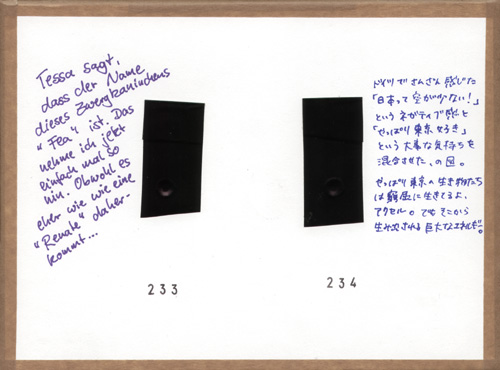 Tessa sagt,
dass der Name
dieses Zwergkaninchens
"Fea" ist. Das
nehme ich jetzt
einfach mal so
hin. Obwohl es
eher wie wie eine
"Renate" daher-
kommt...
233
234
ドイツでさんざん感じた
「日本って空が少ない！」
というネガティブ感と
「やっぱり東京好き」
という大事な気持ちを
混合させた、の図。
やっぱり東京の生き物たち
は窮屈に生きてるよ、
アクセル。でもそこから
生み出される巨大なエネルギー。